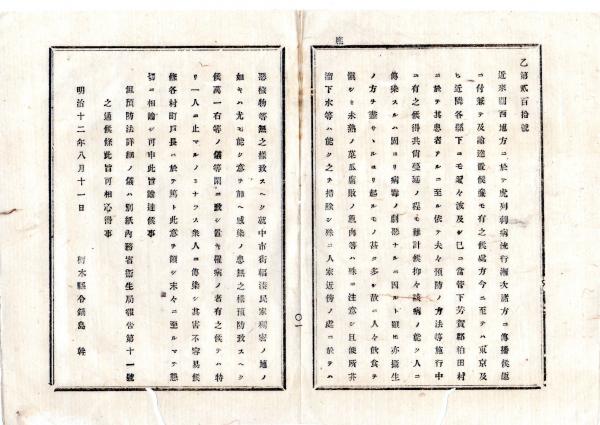 乙第貳百拾號
近來關西地方ニ於テ虎列剌病流行漸次諸方ニ傳播候趣
ニ付兼テ及諭達置候義モ有之候處方今ニ至テハ東京及
ヒ近隣各縣下ニモ漸々波及シ已ニ當管下芳賀郡柏田村
ニ於テ其患者アルニ至ル依テ夫々預防ノ方法等施行中
ニ有之候得共尙蔓延ノ程モ難計候抑々該病ノ能ク人ニ
傳染スルハ固ヨリ病毒ノ劇烈ナルニ因ルト雖モ亦攝生
ノ方ヲ盡サヽルヨリ起ルモノ甚タ多シ故ニ人々飮食ヲ
愼シミ未熟ノ菓瓜腐敗ノ魚肉等ハ殊ニ注意シ且便所芥
溜下水等ハ能ク之ヲ掃除シ殊ニ人家近傍ノ處ニ於テハ
惡穢物等無之樣致スヘク就中市街輻湊民家稠密ノ地ノ
如キハ尤モ能ク意ヲ加ヘ感染ノ患無之樣預防致スヘク
候萬一右等ノ儀等閑ニ致シ置キ罹病ノ者有之候テハ特
リ一人ニ止マルノミナラス衆人ニ傳染シ其害不容易候
條各村町戶長ハ於テ篤ト此意ヲ領シ末々ニ至ルマテ懇
切ニ相諭シ可申此旨諭達候事
但預防法詳細ノ儀ハ別紙內務省衞生局報告第十一號
之通候條此旨可相心得事
明治十二年八月十一日
栃木縣令鍋島 幹